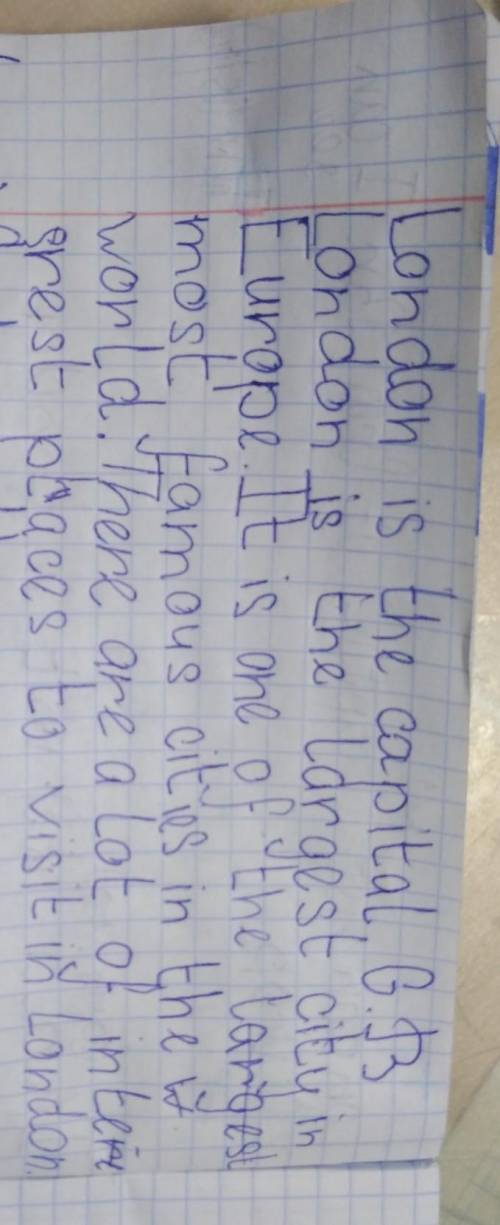 London is the capital G.B
London is the largest city in
Europe. It is one of the largest
most famous cities in the w
world. There are a lot of inte
grest places to visit in London.